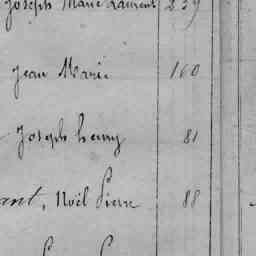 Joseph Marie Laurent 239
Jean Marie 160
Joseph henry 81
ant, Noël Pierre 88